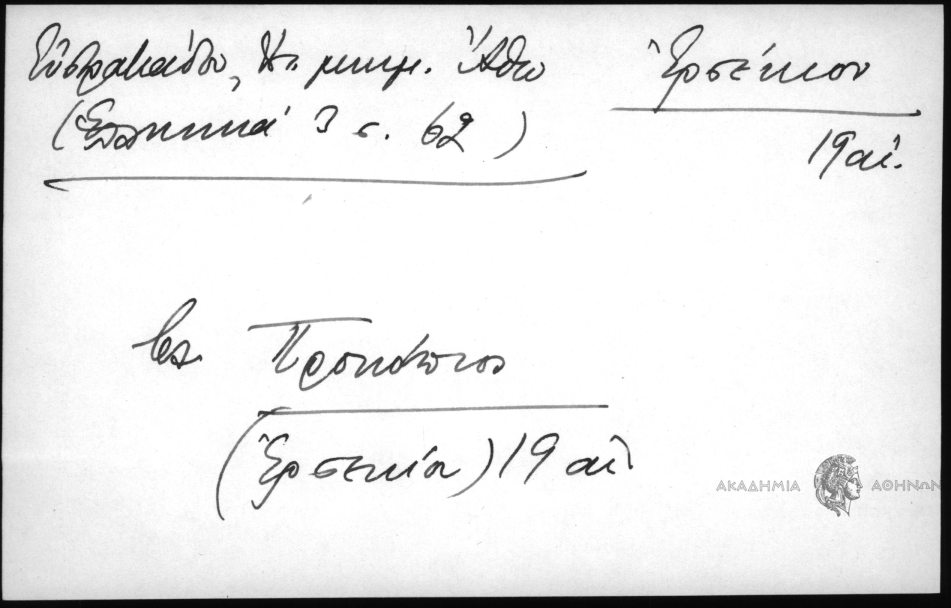 Εὐστρατιάδου, Ἱστ. μνημ. Ἄθω
(Ἑλληνικά 3 σ. 62)
Ἐρσέκιου
19 αἰ.
βλ. Προκόπιος
(Ἐρσεκία) 19 αἰ.
ΑΚΑΔΗΜΙΑ ΑΘΗΝΩΝ